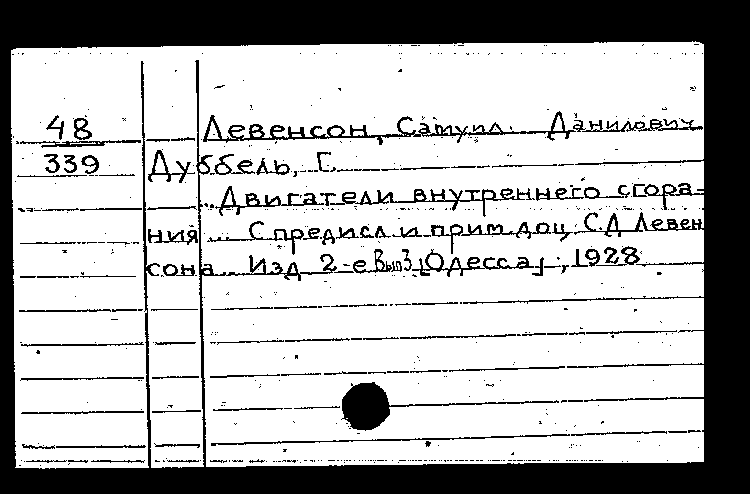 48
339
Левенсон, Самуил Данилович
Дуббель, Г.
...Двигатели внутреннего сгора=
ния ... С предисл и прим. доц. С.Д Левен
сона... Изд 2-е Вып3 [Одесса], 1928